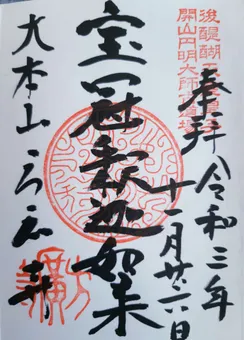 後醍醐
開山円明大師
奉拝 令和三年
十一月廿六日
宝冠釈迦如来
大本山方広寺